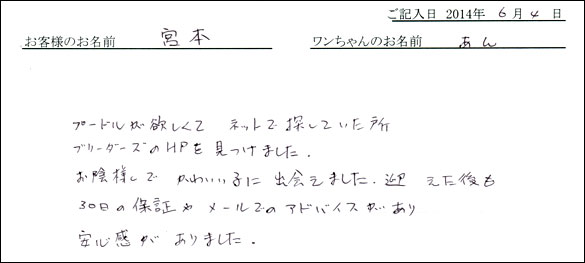 ご記入日 2014年 6月 4日
お客様のお名前 宮本 ワンちゃんのお名前 あん
プードルが欲しくて ネットで探していた所
ブリーダーズのHPを見つけました.
お陰様でで かわいい子に出会えました.迎えた後も
30日の保証やメールでのアドバイスがあり
安心感がありました.